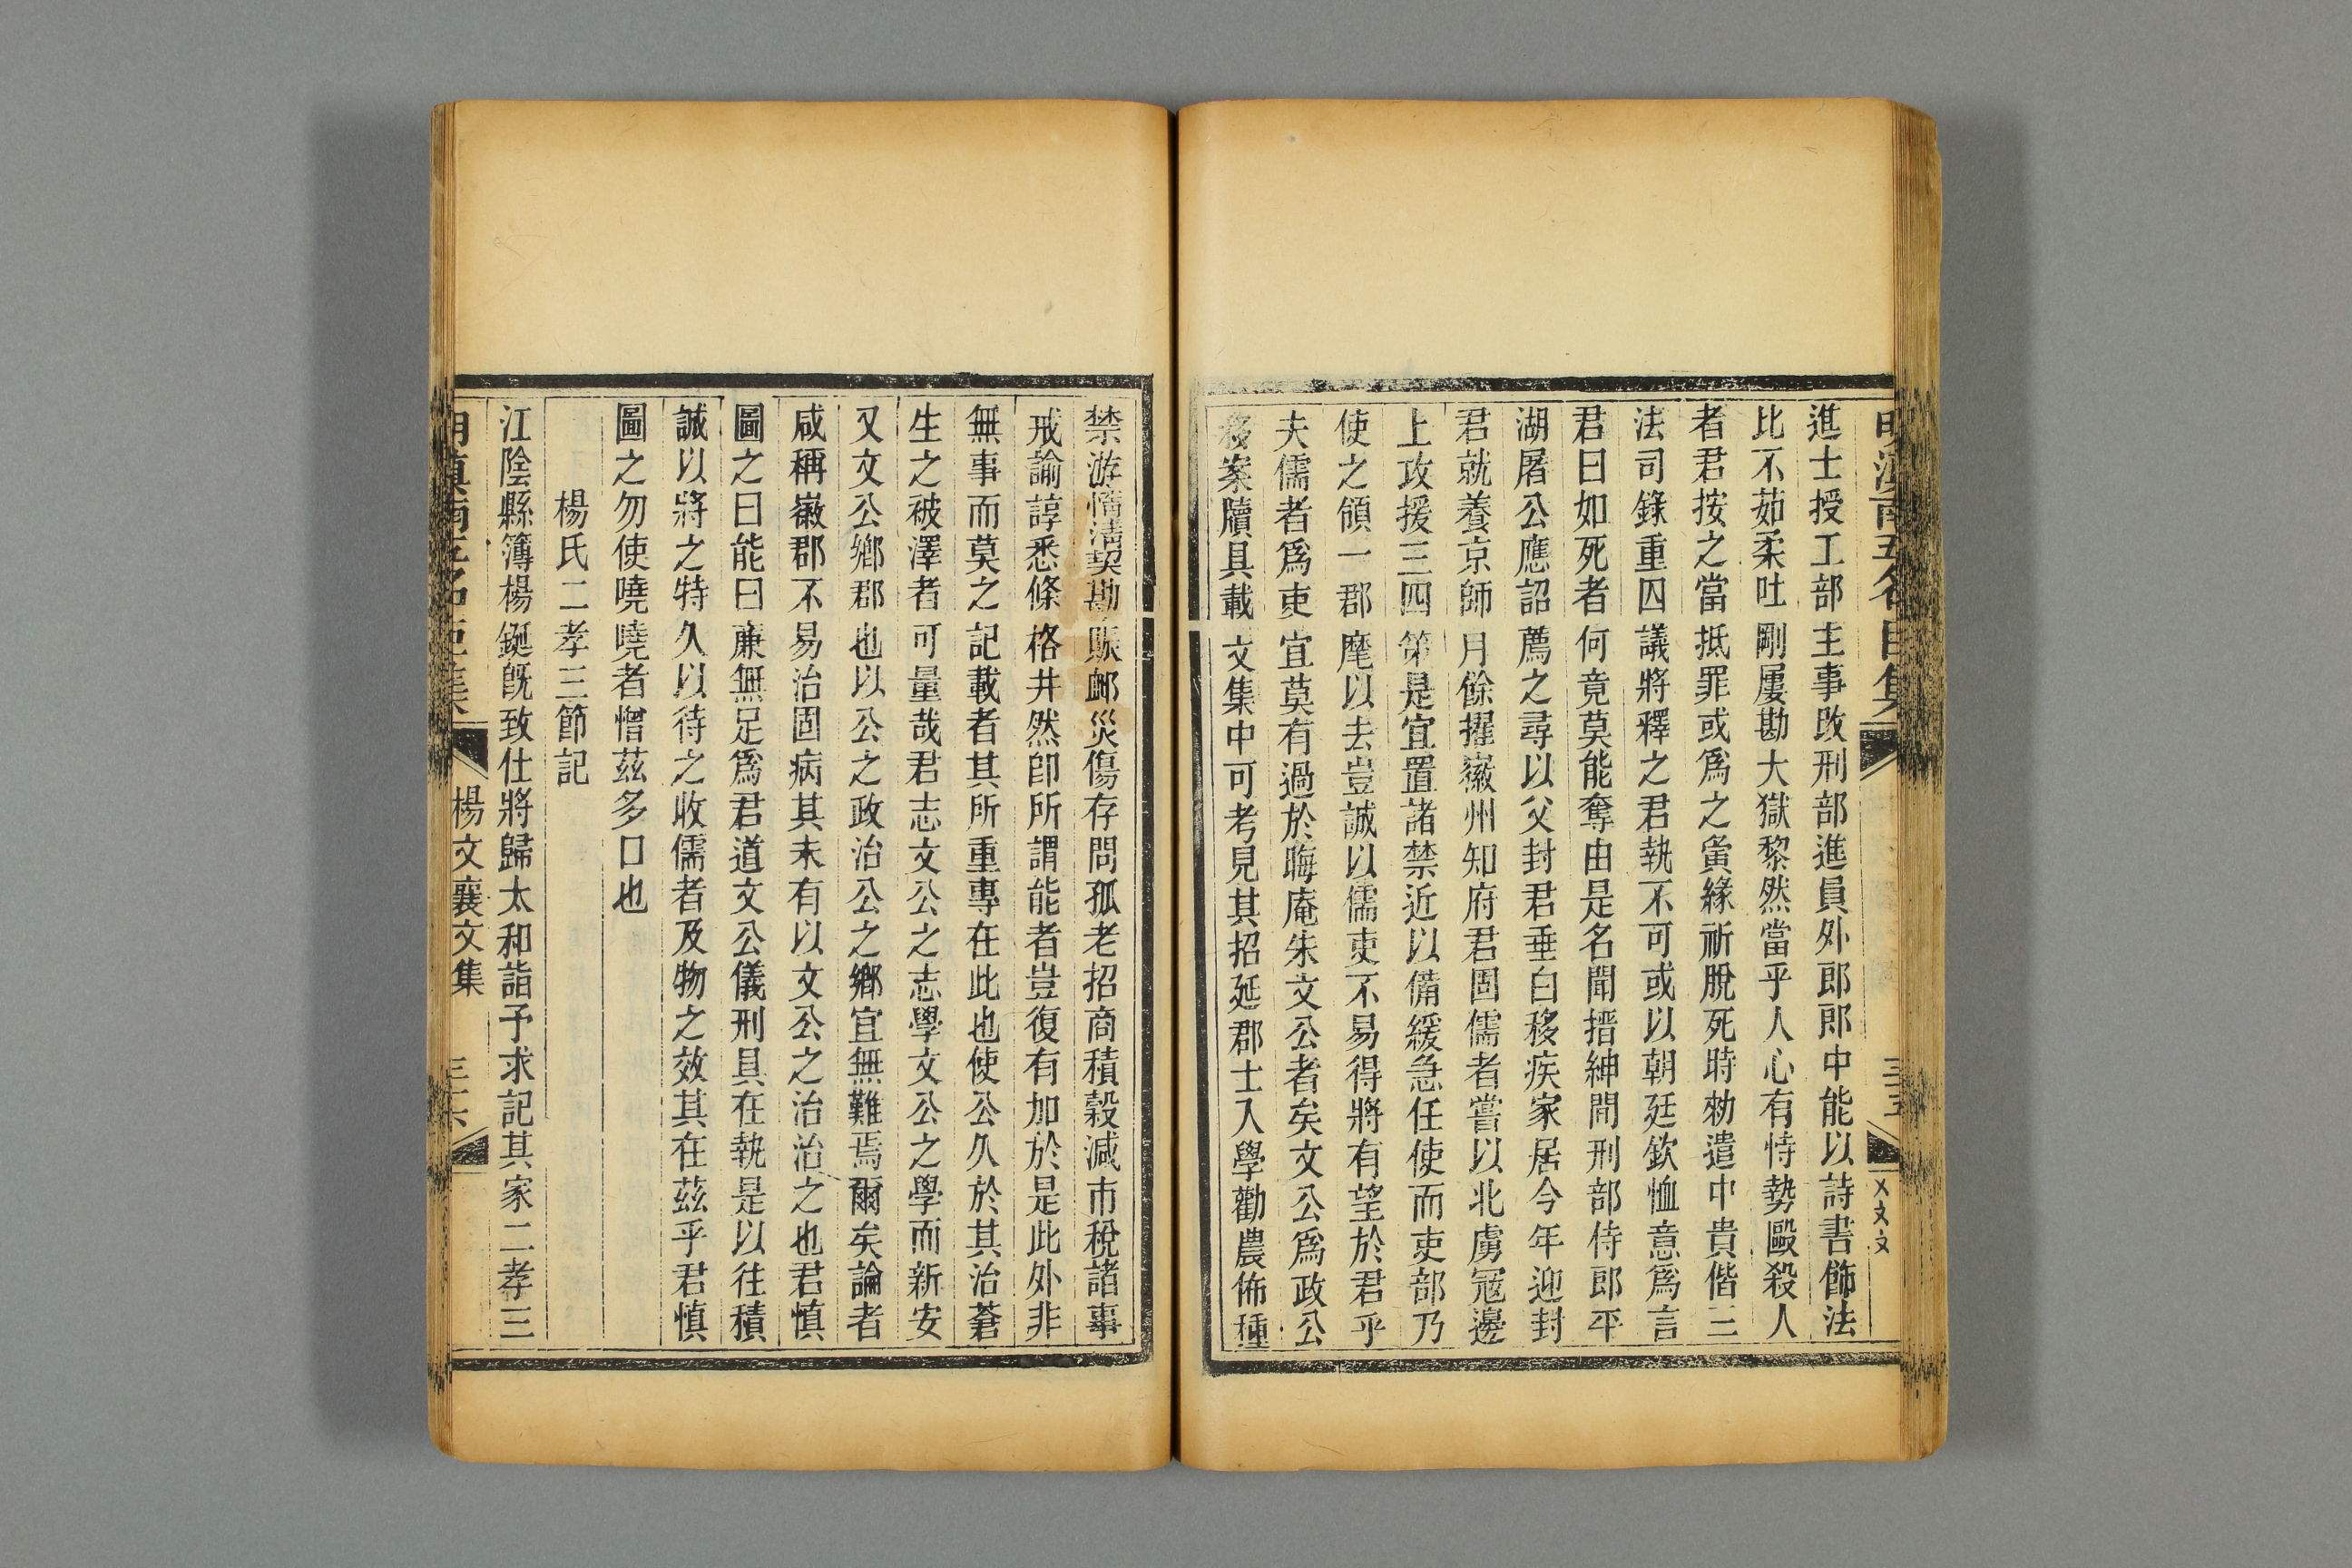 明滇南五名臣集
進士授工部主事改刑部進員外郎郎中能以詩書飾法
比不茹柔吐剛屢勘大獄黎然當乎人心有恃勢毆殺人
者君按之當抵罪或爲之夤緣祈脫死時勑遣中貴偕三
法司錄重囚議將釋之君執不可或以朝廷欽恤意爲言
君曰如死者何竟莫能奪由是名聞搢紳間刑部侍郎平
湖屠公應詔薦之尋以父封君垂白移疾家居今年迎封
君就養京師月餘擢徽州知府君固儒者嘗以北虜寇邊
上攻援三四第是宜置諸禁近以備緩急任使而吏部乃
使之領一郡麾以去豈誠以儒吏不易得將有望於君乎
夫儒者爲吏宜莫有過於晦庵朱文公者矣文公爲政公
移案牘具載文集中可考見其招延郡士入學勸農佈種
禁游惰淸契勘賑䘏災傷存問孤老招商積穀減市稅諸事
戒諭諄悉條格井然卽所謂能者豈復有加於是此外非
無事而莫之記載者其所重專在此也使公久於其治蒼
生之被澤者可量哉君志文公之志學文公之學而新安
又文公鄉郡也以公之政治公之鄉宜無難焉爾矣論者
咸稱徽郡不易治固病其未有以文公之治治之也君愼
圖之曰能曰廉無足爲君道文公儀刑具在執是以往積
誠以將之特久以待之收儒者及物之效其在茲乎君愼
圖之勿使嘵嘵者憎茲多口也
楊氏二孝三節記
江陰縣簿楊鋋旣致仕將歸太和詣予求記其家二孝三
明滇南五名臣集
楊文襄文集
三十六